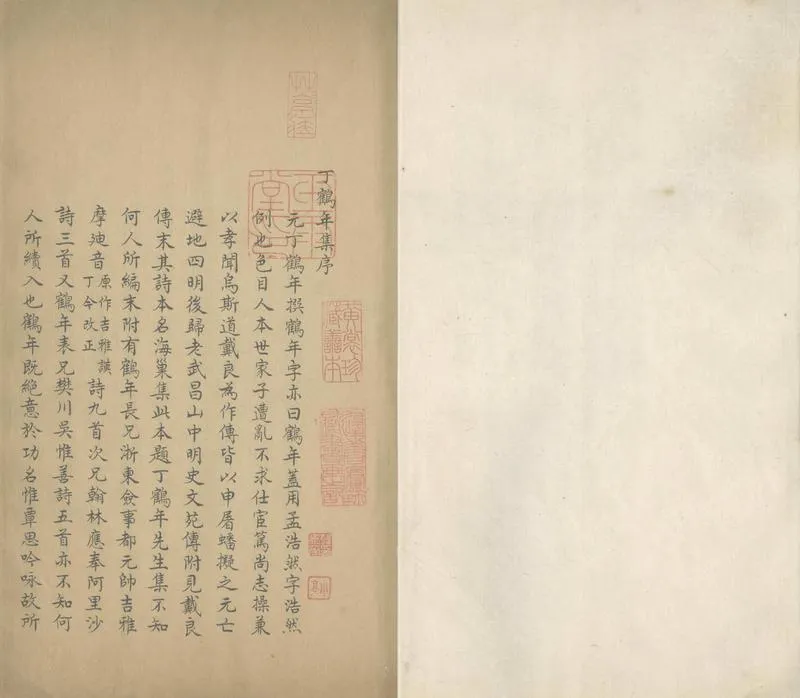 丁鶴年集序
元丁鶴年撰鶴年字亦曰鶴年蓋用孟浩然字浩然
例也色目人本世家子遭亂不求仕宦篤尚志操兼
以孝聞烏斯道戴良為作傳皆以申屠蟠擬之元亡
避地四明後歸老武昌山中明史文苑傳附見戴良
傳末其詩本名海巢集此本題丁鶴年先生集不知
何人所編末附有鶴年長兄浙東僉事都元帥吉雅
摩廸音原作吉雅謨丁今改正詩九首次兄翰林應奉阿里沙
詩三首又鶴年表兄樊川吳惟善詩五首亦不知何
人所續入也鶴年既絕意於功名惟覃思吟咏故所
黃裳珍藏善本